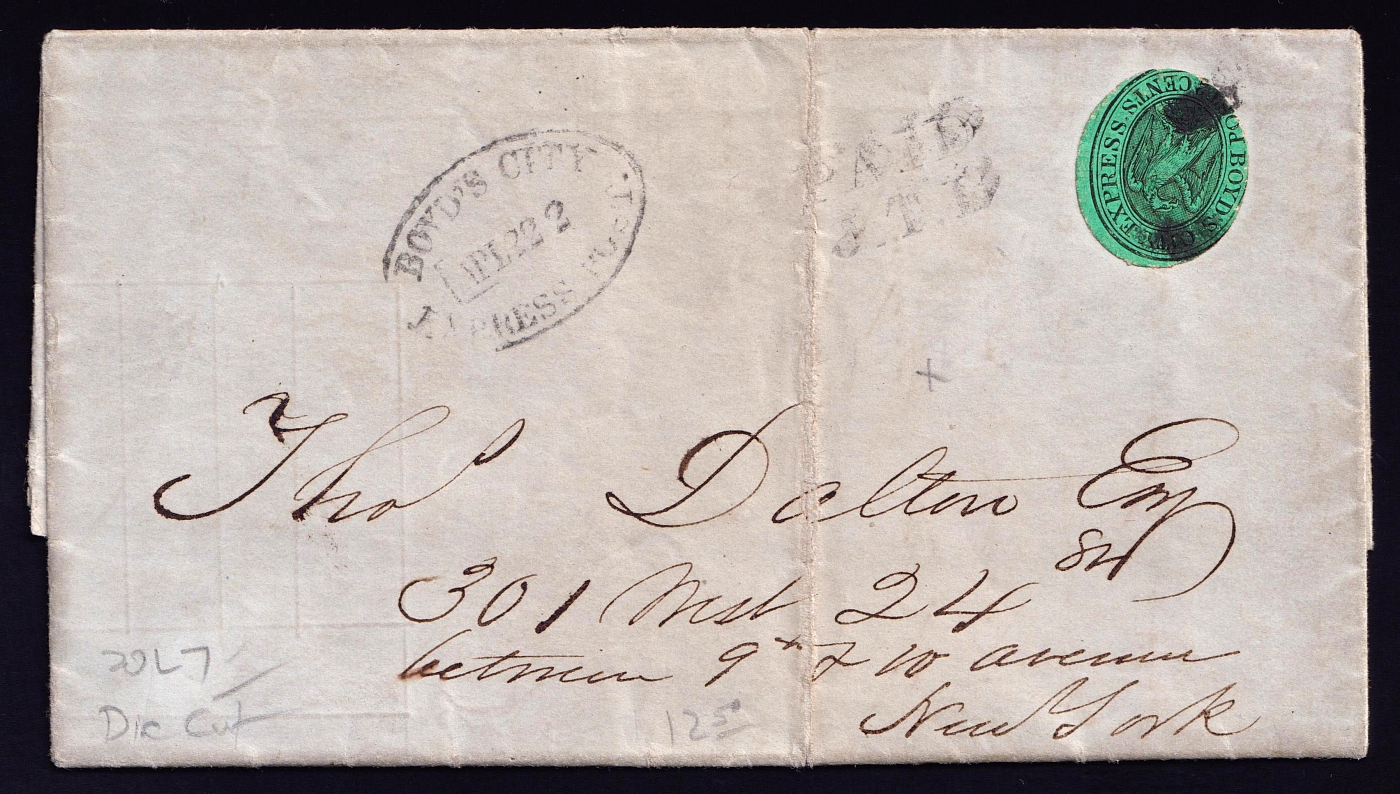 BOYD'S CITY
APL 22 2
EXPRESS POST.
PAID
J.T.B
BOYD'S CITY EXPRESS POST
CENTS
Thos Dalton Esq
301 West 24
between 9th & 10 avenue
New York
20L7
Die Cut